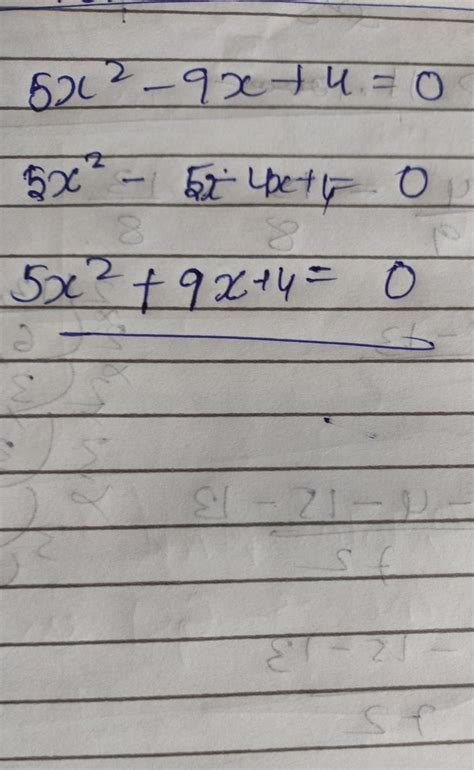 5x² - 9x + 4 = 0
5x² - 5x - 4x + 4 = 0
5x² + 9x + 4 = 0